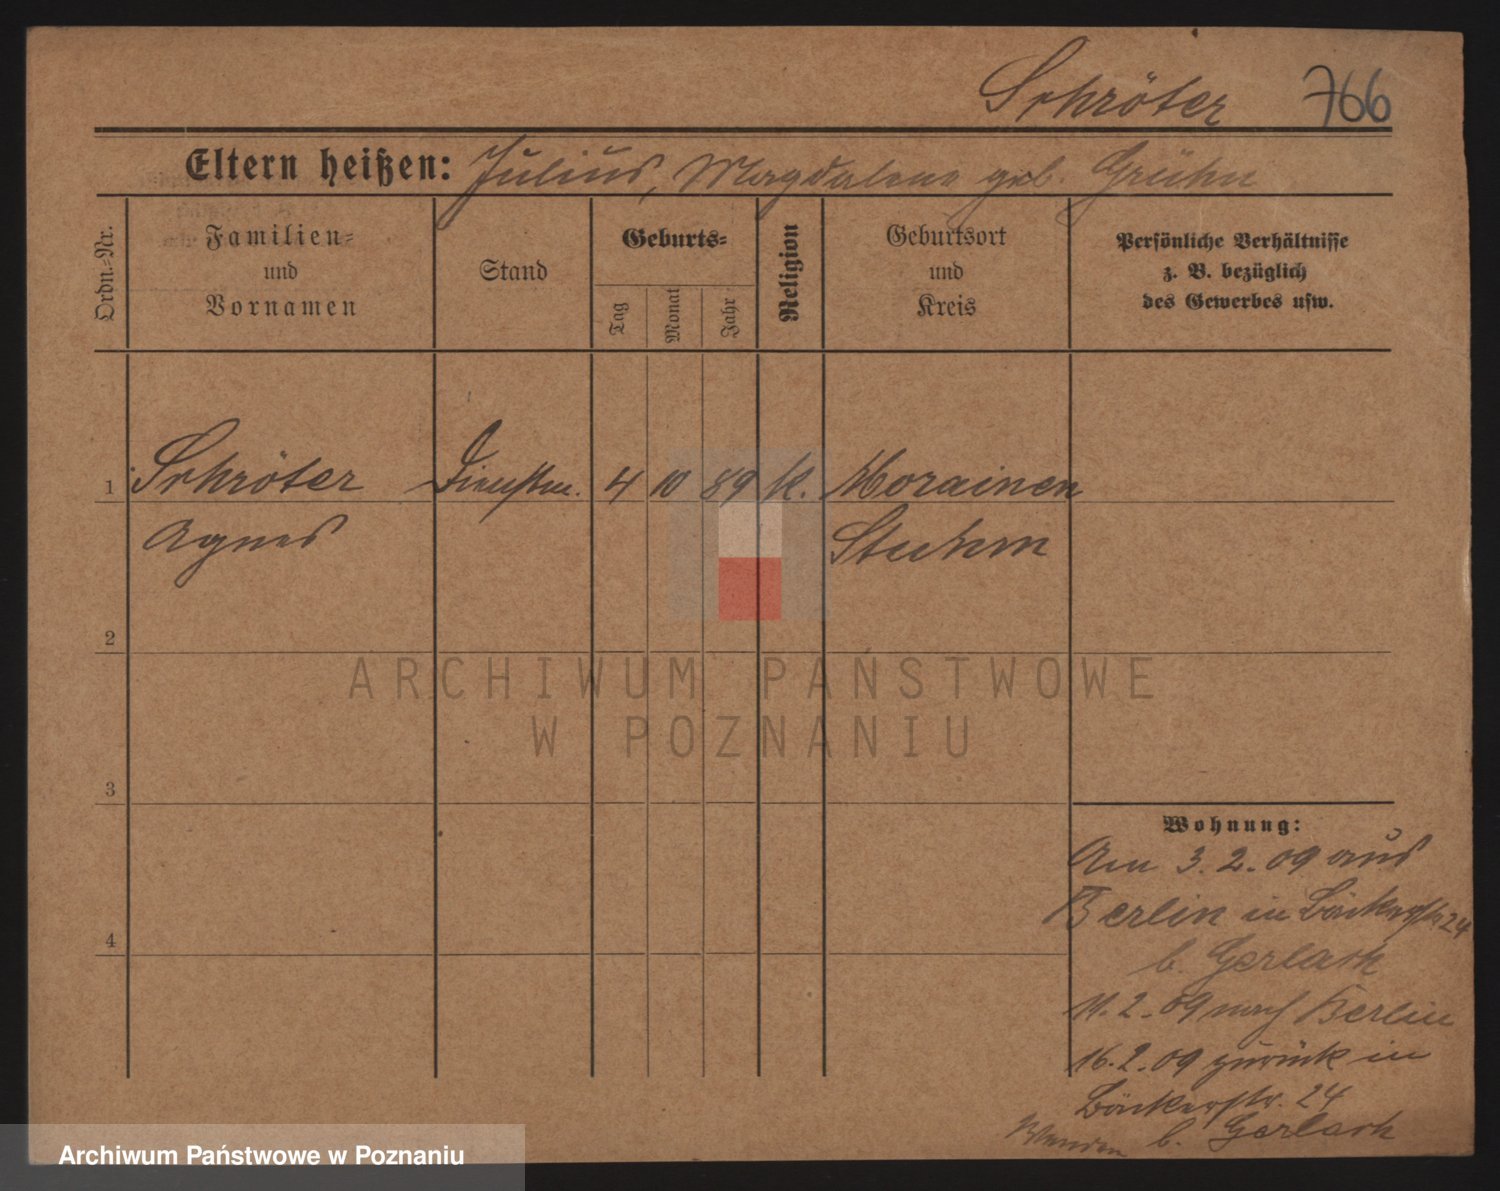 Schröter 766
Eltern heißen: Julius, Magdalene geb. Grühn
Ordn.-Nr.
Familien-
und
Vornamen
Stand
Geburts-
Tag
Monat
Jahr
Religion
Geburtsort
und
Kreis
Persönliche Verhältnisse
z. B. bezüglich
des Gewerbes usw.
1 Schröter Dienstm. 4 10 89 k. Morainen
Agnes Stuhm
2
ARCHIWUM PAŃSTWOWE
W POZNANIU
3
Wohnung:
Am 3.2.09 aus
Berlin in Bäckerstr 24
b. Gerlach
11.2.09 nach Berlin
16.2.09 zurück in
Bäckerstr. 24
b. Gerlach
Wenden
4
Archiwum Państwowe w Poznaniu